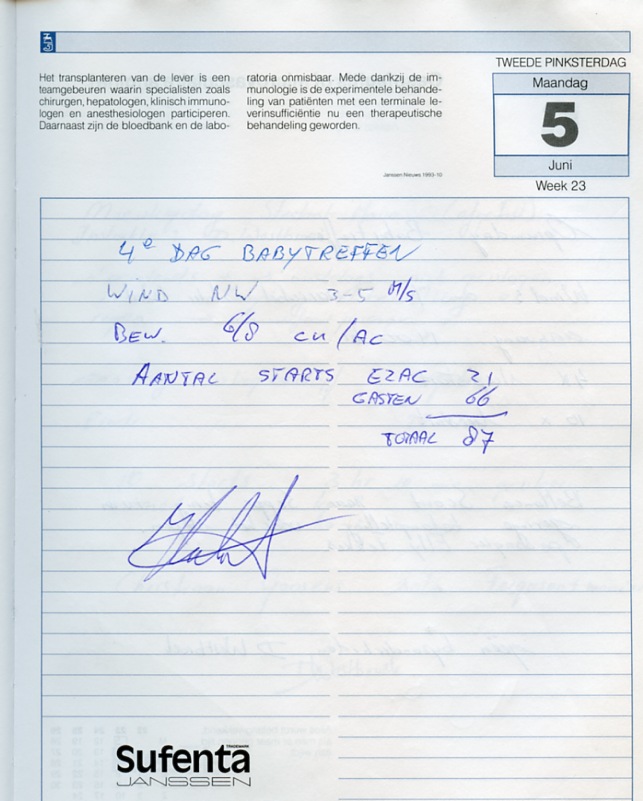 TWEEDE PINKSTERDAG
Het transplanteren van de lever is een
teamgebeuren waarin specialisten zoals
chirurgen, hepatologen, klinisch immuno-
logen en anesthesiologen participeren.
Daarnaast zijn de bloedbank en de labo-
ratoria onmisbaar. Mede dankzij de im-
munologie is de experimentele behande-
ling van patiënten met een terminale le-
verinsufficiëntie nu een therapeutische
behandeling geworden.
Janssen Nieuws 1993-10
Maandag
5
Juni
Week 23
4e DAG BABYTREFFEN
WIND NW 3-5 M/S
BEW. 6/8 CU/AC
AANTAL STARTS EZAC 21
GASTEN 66
TOTAAL 87
Sufenta
TRADEMARK
JANSSEN